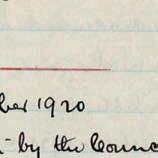 ber 1920
by the Counc